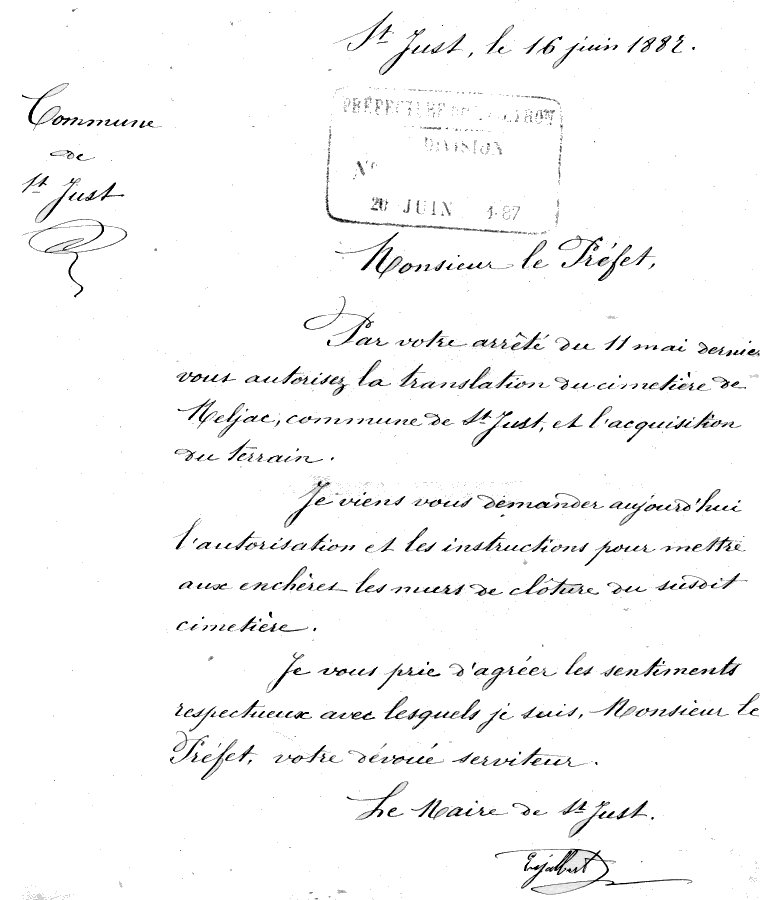 St Just, le 16 juin 1882.
Commune
de
St Just
PRÉFECTURE DE L'AVEYRON
DIVISION
No
20 JUIN 187
Monsieur le Préfet,
Par votre arrêté du 11 mai dernier
vous autorisez la translation du cimetière de
Meljac, commune de St Just, et l'acquisition
du terrain.
Je viens vous demander aujourd'hui
l'autorisation et les instructions pour mettre
aux enchères les murs de clôture du susdit
cimetière.
Je vous prie d'agréer les sentiments
respectueux avec lesquels je suis, Monsieur le
Préfet, votre dévoué serviteur.
Le Maire de St Just.
Enjalbert